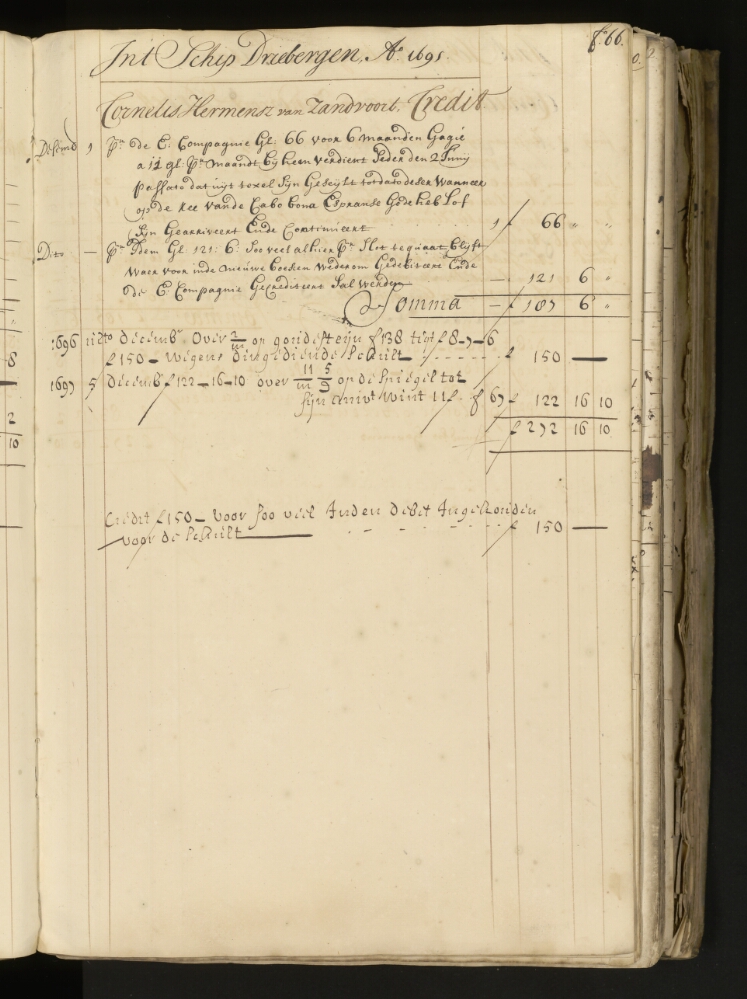 f° 66.
Int Schip Driebergen, A° 1695
Cornelis Hermensz van Zandvoort. Credit
Decemb 1 Pr de E: Compagnie Gl. 66 voor 6 maanden Gagie
a 11 gl: Pr maandt bij hem verdient Zeder den 2 Junij
passato dat uijt texel Zijn Gezeijlt tot dato deser wanneer
op de Ree van de Cabo bona Esperanse Gode heb Lof
Zijn Gearriveert Ende Continueert 1 f 66 " "
Dito — Pr Idem Gl 121: 6: Soo veel alhier Pr Slot te quaat blijft
waer voor inde nieuwe boeken wederom Gedebiteert Ende
de E Compagnie Gecrediteert Sal werden — f 121 6 "
Somma — f 187 6 "
1696 ulto decemb Over 2/m op goudesteijn f138 tint f8-7-6
f150 — wegens dingediende schult f 150 —
1697 5 decemb f122-16-10 over 11/m 5/3 op de Spiegel tot
sijn wint 11 f f 67 f 122 16 10
f 272 16 10
Credit f150 — voor soo veel Inden debet Ingeschreven
voor de schult f 150 —
8
2
10